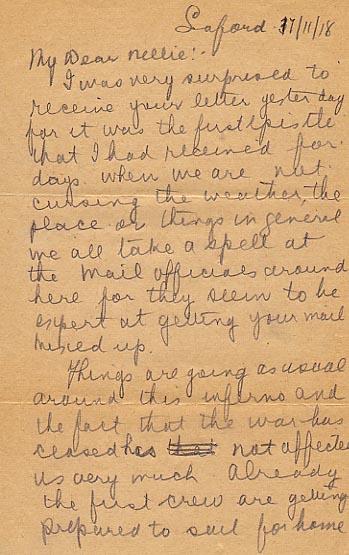 Seaford 17/11/18
My Dear Nellie:-
I was very surprised to
receive your letter yesterday
for it was the first epistle
that I had received for
days. when we are not
cursing the weather, the
place or things in general
we all take a spell at
the Mail officials around
here for they seem to be
expert at getting your mail
mixed up.
Things are going as usual
around this inferno and
the fact that the war has
ceased has not affected
us very much Already
the first crew are getting
prepared to sail for home